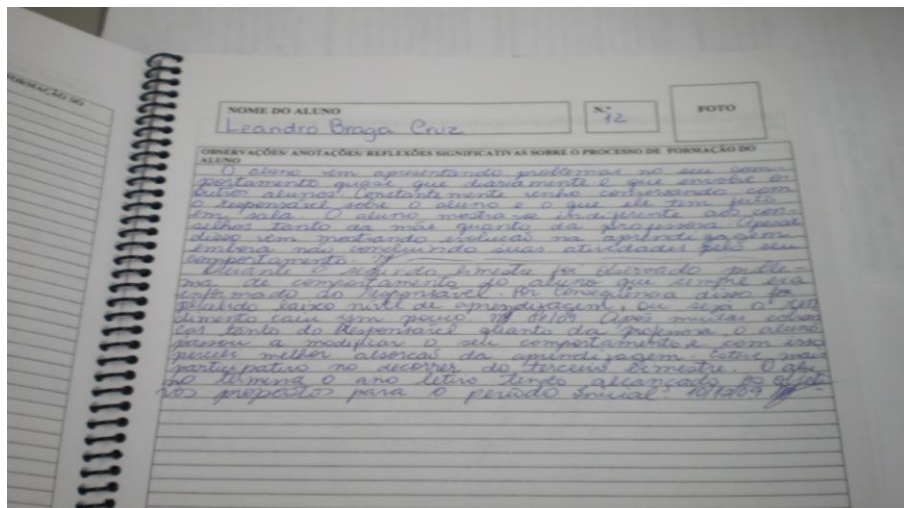 FORMAÇÃO DO
NOME DO ALUNO
Leandro Braga Cruz
N.º
12
FOTO
OBSERVAÇÕES/ ANOTAÇÕES/ REFLEXÕES SIGNIFICATIVAS SOBRE O PROCESSO DE FORMAÇÃO DO
ALUNO
O aluno vem apresentando problemas no seu com-
portamento quase que diariamente e que envolve os
outros alunos. Constantemente venho conversando com
o responsável sobre o aluno e o que ele tem feito
em sala. O aluno mostra-se indiferente aos con-
selhos tanto da mãe quanto da professora. Apesar
disso vem mostrando evolução na aprendizagem
embora não concluindo suas atividades pelo seu
comportamento.
Durante o segundo bimestre foi observado proble-
ma de comportamento do aluno que sempre era
informado ao responsável. Por consequência disso foi
percebido baixo nível de aprendizagem, ou seja o ren
dimento caiu um pouco. Após muitas
cas tanto do Responsável quanto da professora, o aluno
passou a modificar o seu comportamento e com isso
percebi melhor absorção da aprendizagem. Esteve mais
participativo no decorrer do terceiro bimestre. O alu
no termina o ano letivo tendo alcançado os objeti
vos propostos para o período inicial. 10/12/09